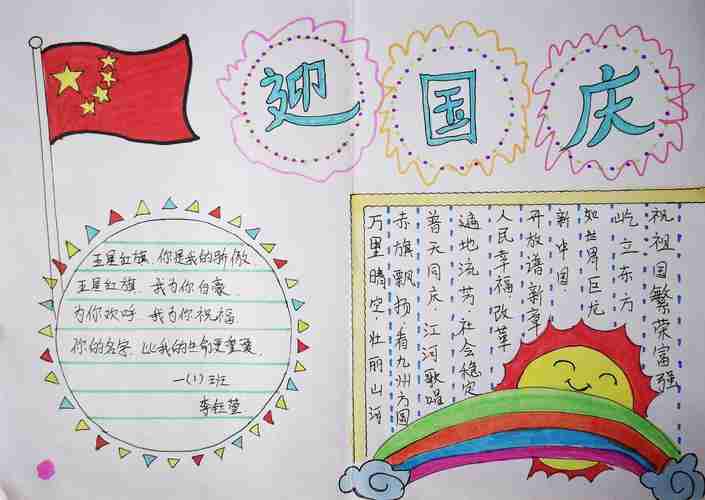 迎国庆
五星红旗 你是我的骄傲
五星红旗 我为你自豪
为你欢呼 我为你祝福
你的名字 比我的生命更重要
一(1)班
李钰莹
万里晴空,壮丽山河
赤旗飘扬,看九州方圆
普天同庆,江河歌唱
遍地流芳,社会稳定
人民幸福,改革
开放谱新章
新中国
如世界巨龙
屹立东方
祝祖国繁荣富强